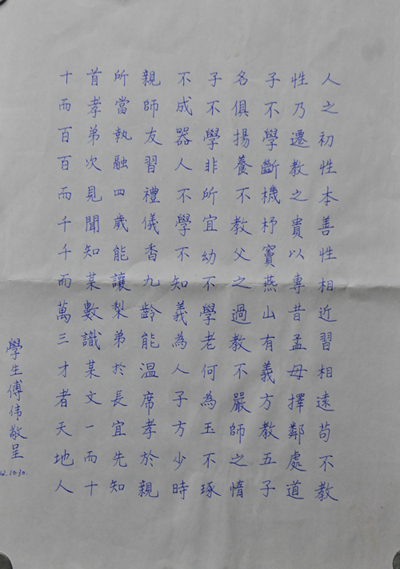 人之初性本善性相近習相遠苟不教
性乃遷教之貴以專昔孟母擇鄰處道
子不學斷機杼竇燕山有義方教五子
名俱揚養不教父之過教不嚴師之惰
子不學非所宜幼不學老何為玉不琢
不成器人不學不知義為人子方少時
親師友習禮儀香九齡能溫席孝於親
所當執融四歲能讓梨弟於長宜先知
首孝弟次見聞知某數識某文一而十
十而百百而千千而萬三才者天地人
學生傅偉敬呈